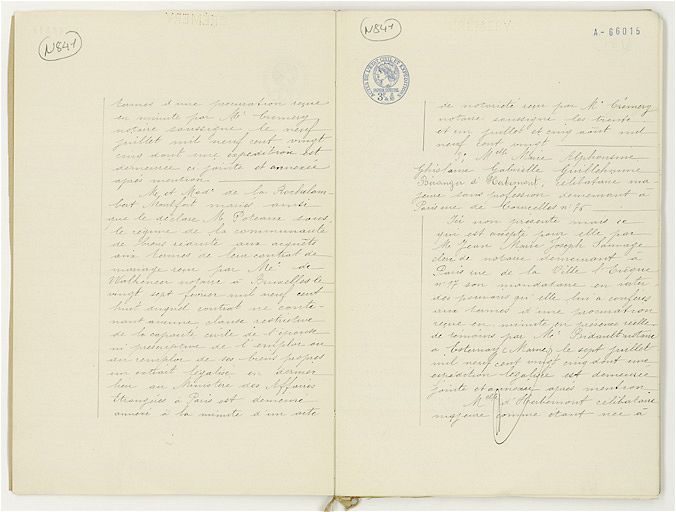 N841
termes d'une procuration reçue
en minute par Me Crémery
notaire soussigné le neuf
juillet mil neuf cent vingt
cinq dont une expédition est
demeurée ci jointe et annexée
après mention.
M. et Made de la Rochelam-
bert Montfort mariés ainsi
que le déclare M. Poteaux sous
le régime de la communauté
de biens réduite aux acquêts
aux termes de leur contrat de
mariage reçu par Me de
notaire à Bruxelles le
vingt sept février mil neuf cent
huit duquel contrat ne conte-
nant aucune clause restrictive
de la capacité civile de l'épouse
ni prescriptive de l'emploi ou
du remploi de ses biens propres
un extrait légalisé en dernier
lieu au Ministère des Affaires
Etrangères à Paris est demeuré
annexé à la minute d'un acte
N841
A.-66015
3F
de notoriété reçu par Me Crémery
notaire soussigné les trente
et un juillet et cinq août mil
neuf cent vingt
Melle Marie Alphonsine
Ghislaine Gabrielle Guillelmine
d'Herbemont, célibataire ma-
jeure sans profession demeurant à
Paris rue de Courcelles n° 75
Ici non présente mais ce
qui est accepté pour elle par
M. Jean Marie Joseph Sauvage
clerc de notaire demeurant à
Paris rue de la Ville l'Evêque
n° 17 son mandataire en vertu
des pouvoirs qu'elle lui a conférés
aux termes d'une procuration
reçue en minute en présence réelle
de témoins par Me notaire
à (Marne) le sept juillet
mil neuf cent vingt cinq dont une
expédition légalisée est demeurée
jointe et annexée après mention
Melle d'Herbemont célibataire
majeure comme étant née à